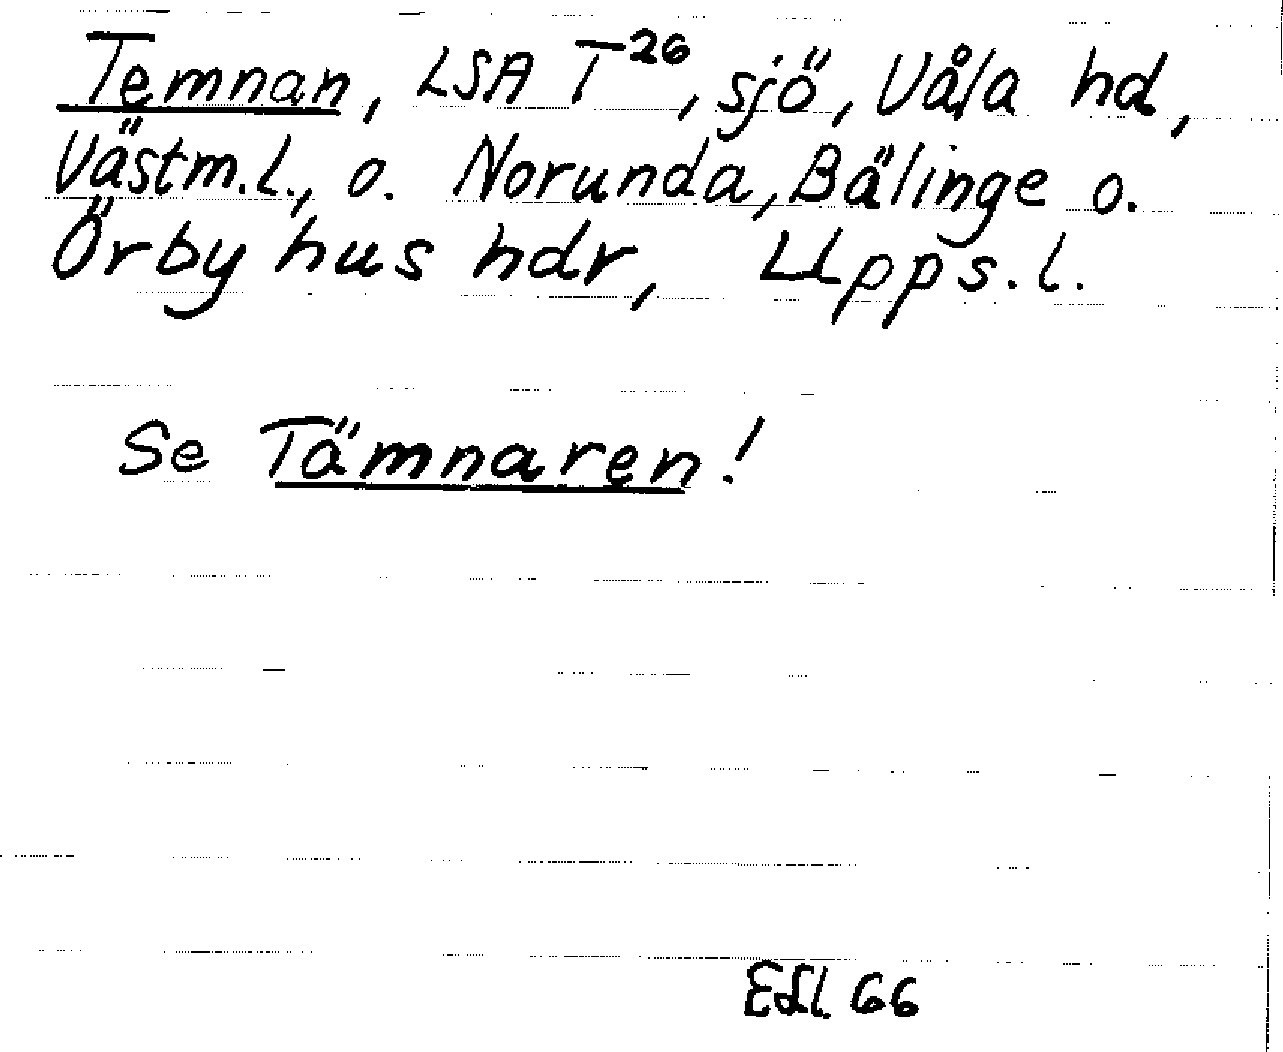 Temnan, LSA T26, sjö, Våla hd,
Västm.l., o. Norunda, Bälinge o.
Örbyhus hdr, Upps.l.
Se Tämnaren!
66